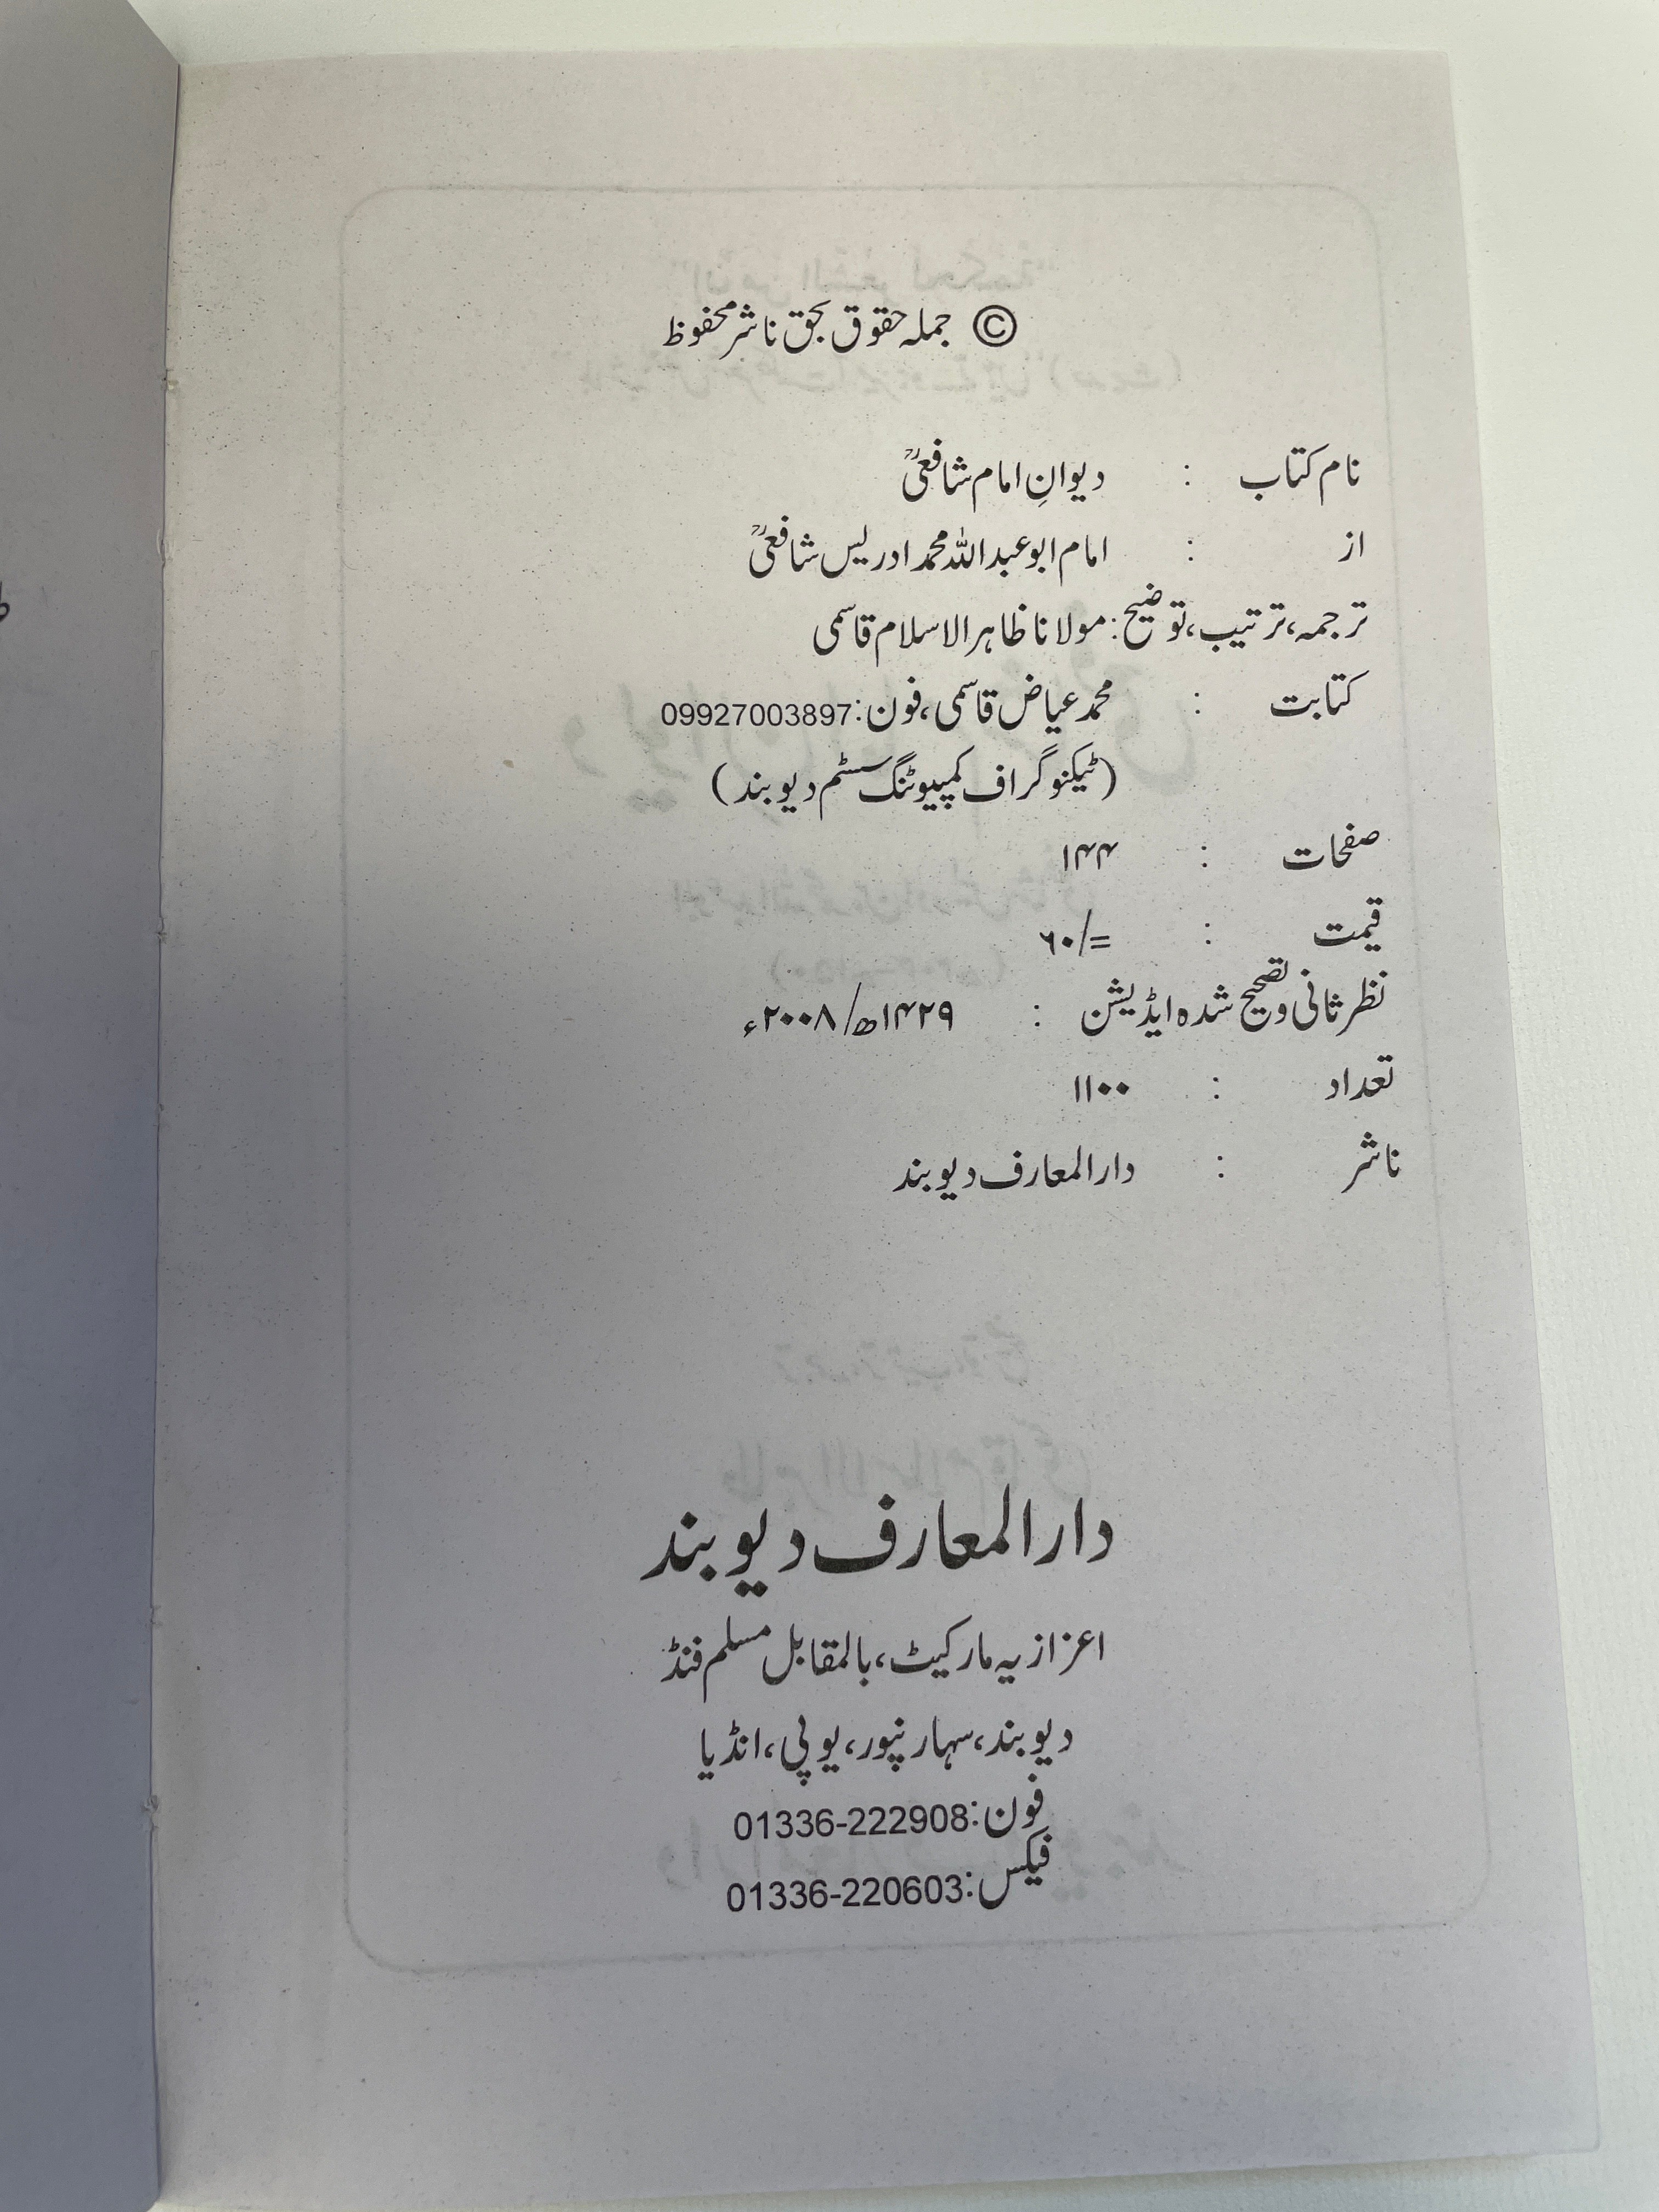 © جملہ حقوق بحق ناشر محفوظ
نام کتاب : دیوانِ امام شافعیؒ
از : امام ابو عبداللہ محمد ادریس شافعیؒ
ترجمہ، ترتیب، توضیح: مولانا ظاہر الاسلام قاسمی
کتابت : محمد عیاض قاسمی، فون: 09927003897
(ٹیکنو گراف کمپیوٹنگ سسٹم دیوبند)
صفحات : ۱۴۴
قیمت : ۶۰/=
نظر ثانی و تصحیح شدہ ایڈیشن : ۱۴۲۹ھ/۲۰۰۸ء
تعداد : ۱۱۰۰
ناشر : دار المعارف دیوبند
دار المعارف دیوبند
اعزازیہ مارکیٹ، بالمقابل مسلم فنڈ
دیوبند، سہارنپور، یوپی، انڈیا
فون: 01336-222908
فیکس: 01336-220603